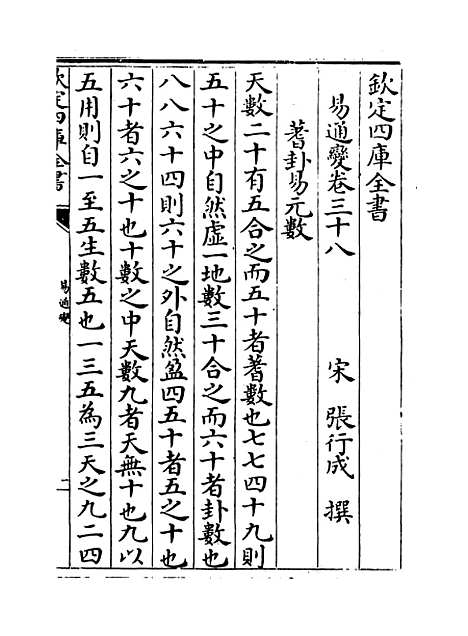 欽定四庫全書
易通變卷三十八
宋　張行成　撰
蓍卦易元數
天數二十有五合之而五十者蓍數也七七四十九則
五十之中自然虛一地數三十合之而六十者卦數也
八八六十四則六十之外自然盈四五十者五之十也
六十者六之十也十數之中天數九者天無十也九以
五用則自一至五生數五也一三五為三天之九二四
欽定四庫全書
易通變